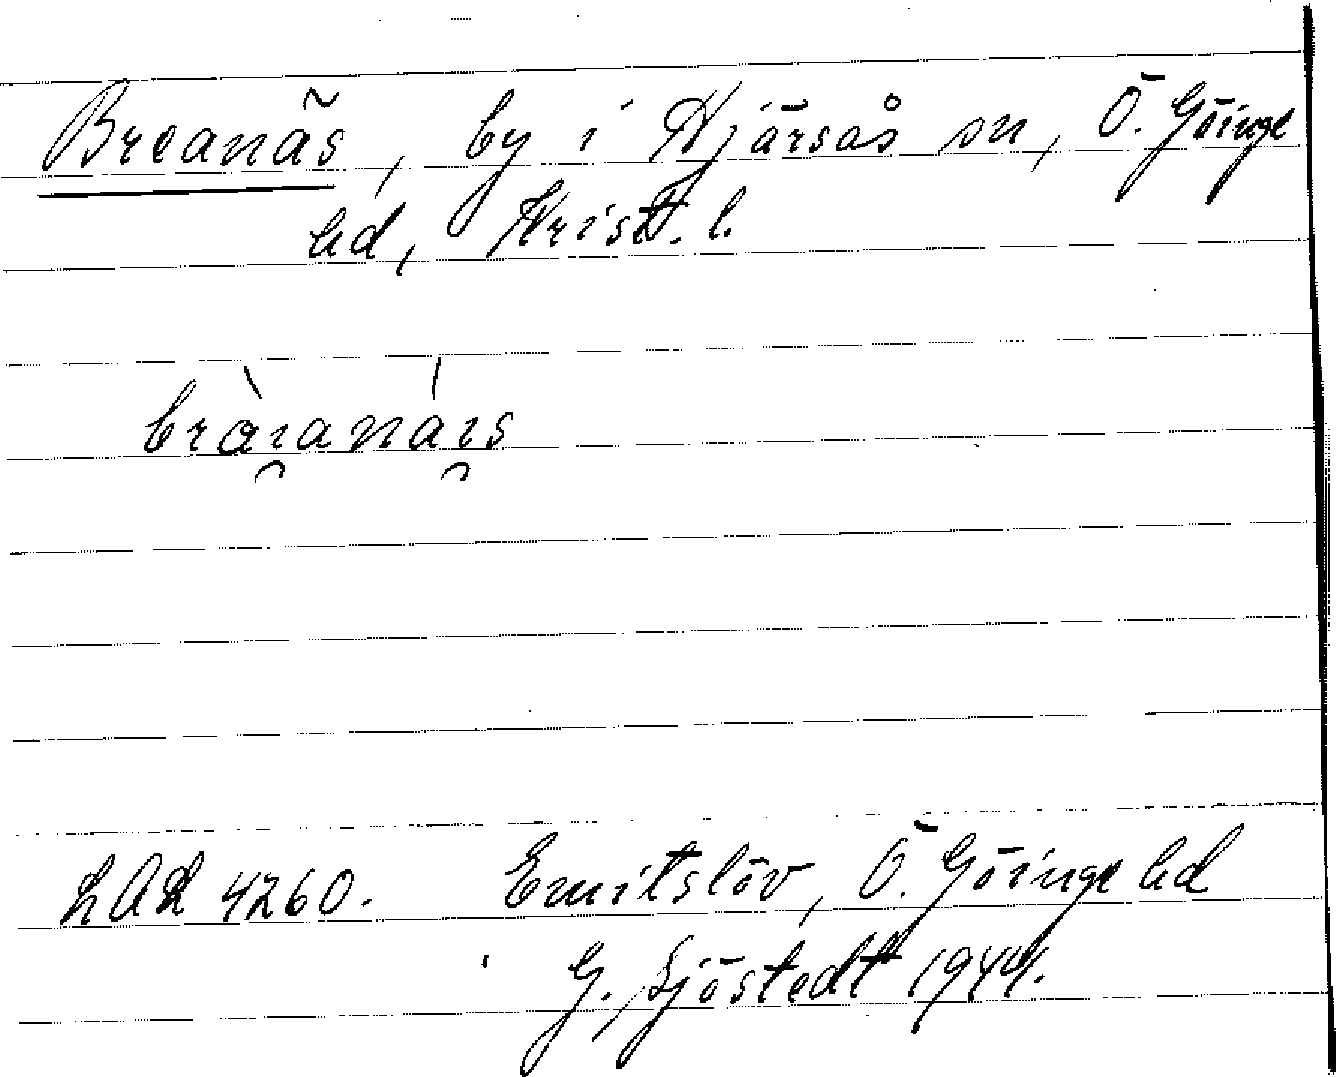 Breanäs, by i Hjärsås sn, Ö. Göinge
hd, Krist. l.
bràɪanáɪs
LAL 4260. Emitslöv, Ö. Göinge hd
G. Sjöstedt 1944.